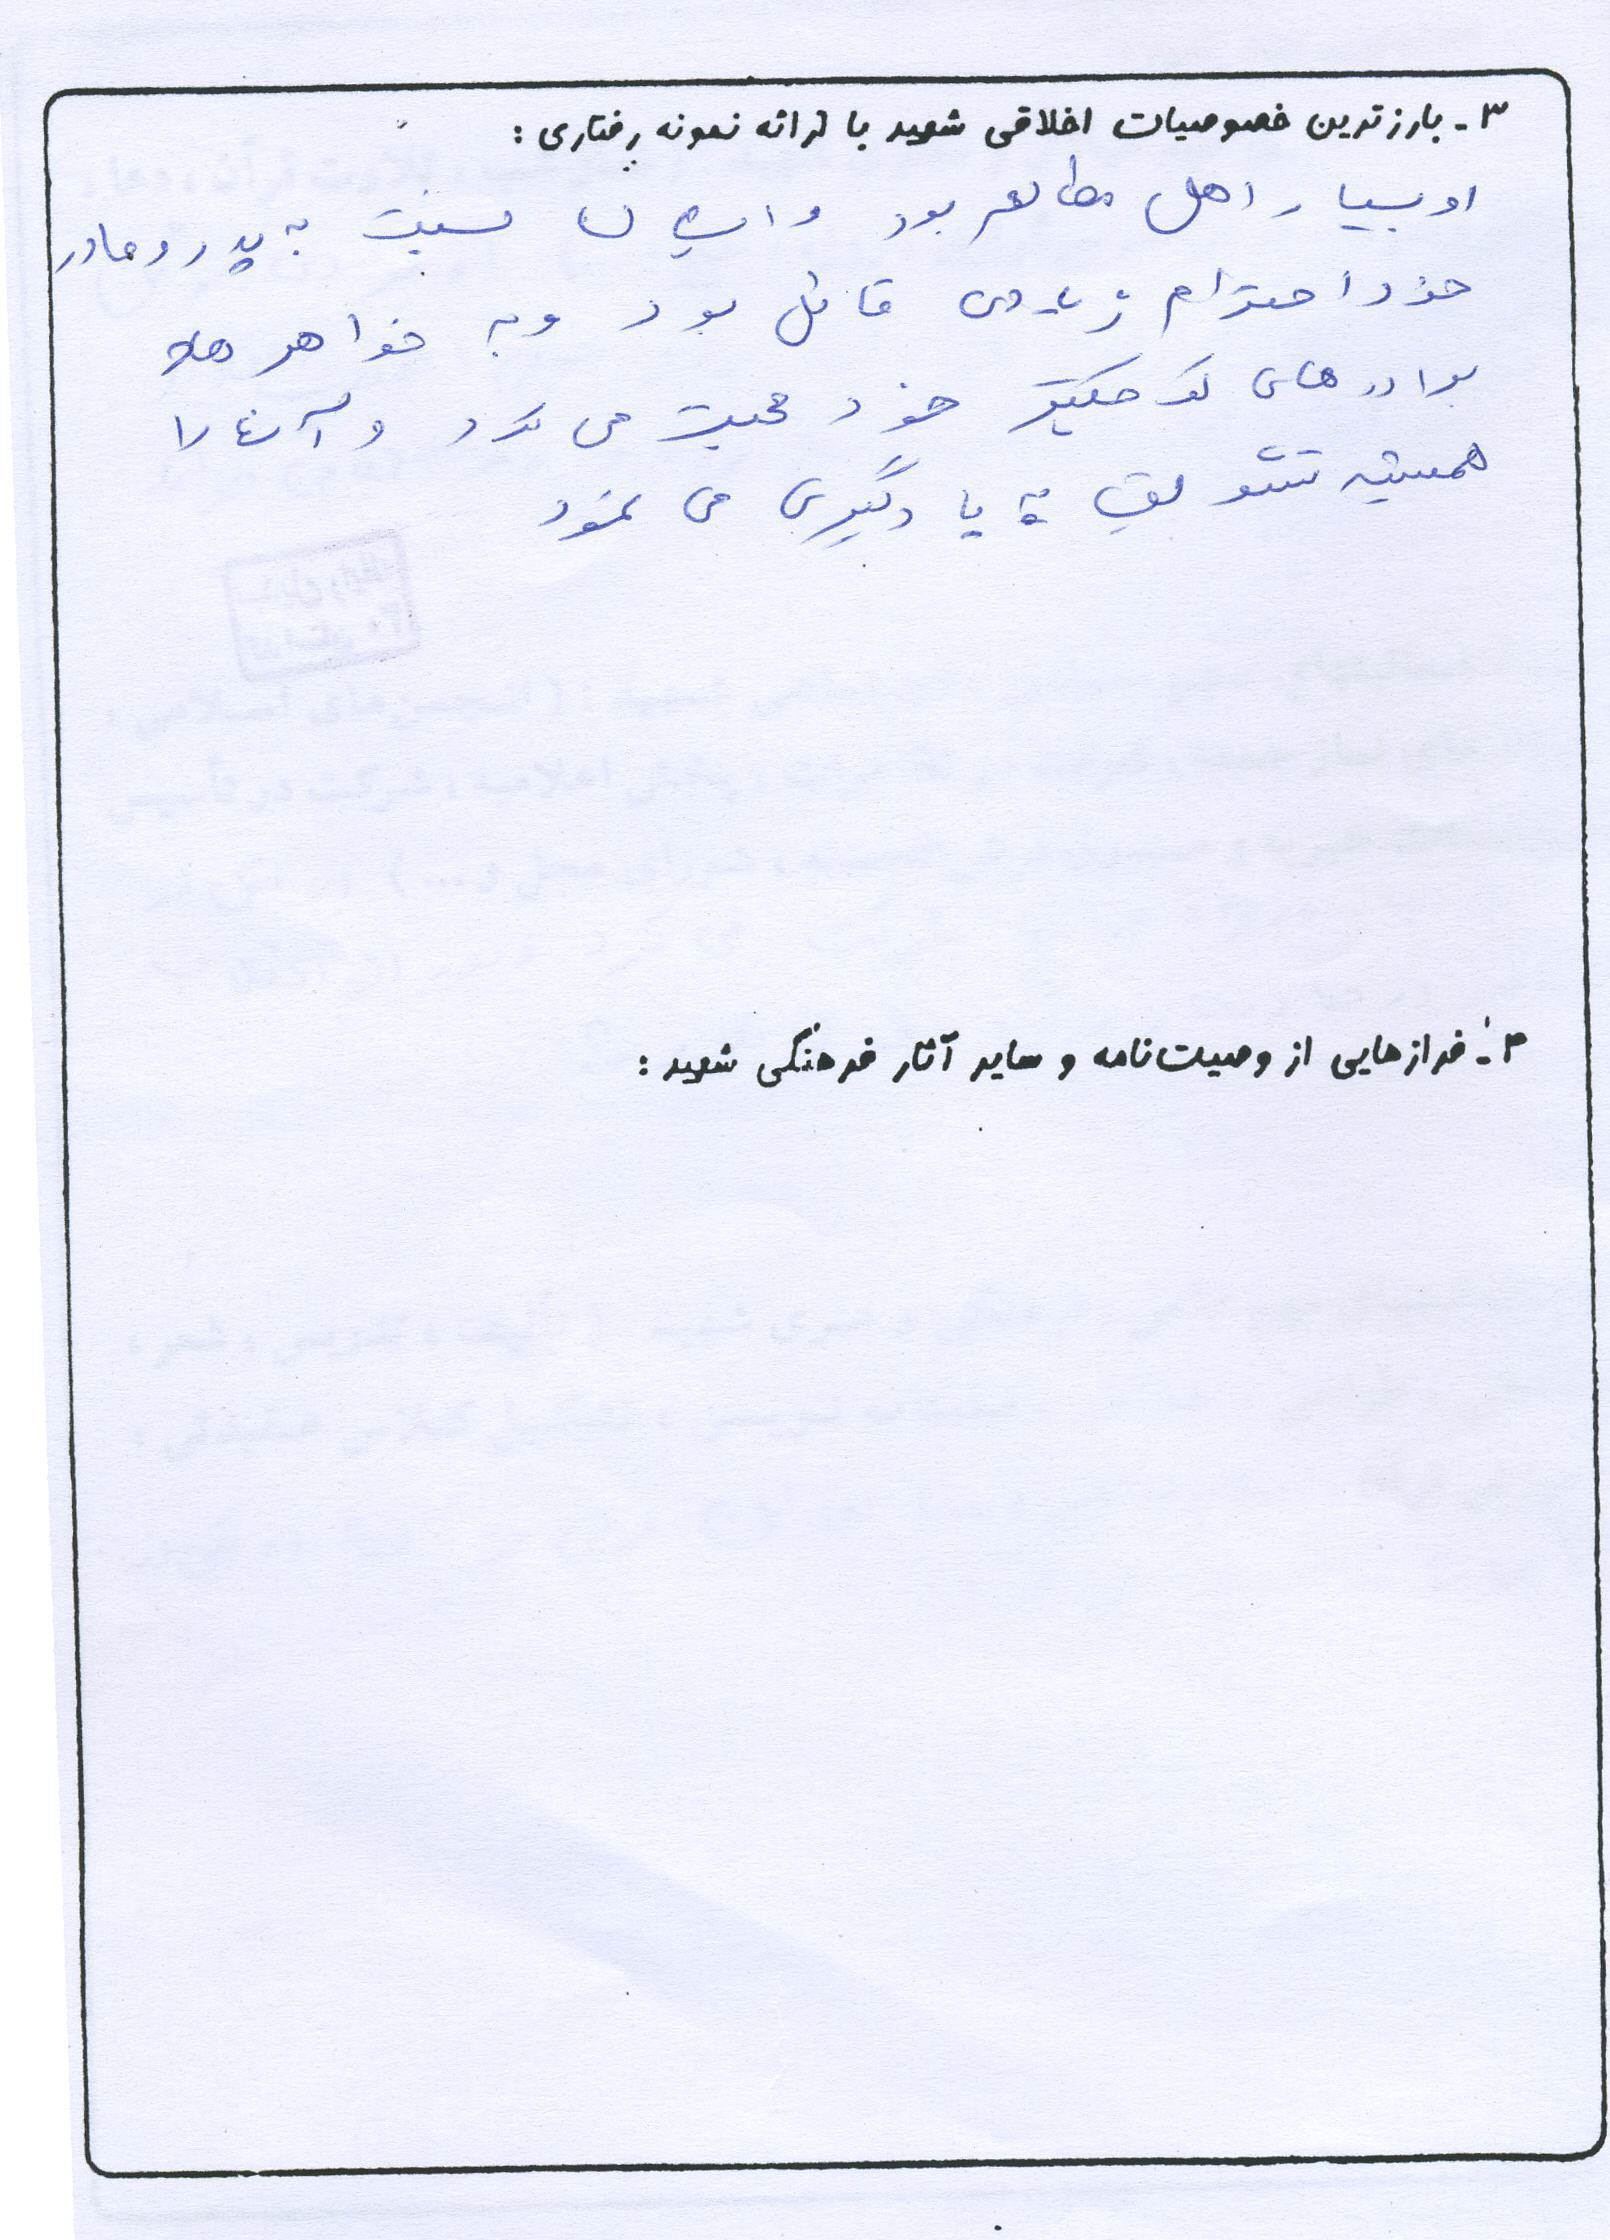 ۳- بارزترین خصوصیات اخلاقی شهید با ارائه نمونه رفتاری :
او بسیار اهل مطالعه بود و ایشان نسبت به پدر و مادر
خود احترام زیادی قائل بود و به خواهر ها و
برادرهای کوچکتر خود محبت می کرد و آنها را
همیشه تشویق به یادگیری می نمود
۴- فرازهایی از وصیت‌نامه و سایر آثار فرهنگی شهید :